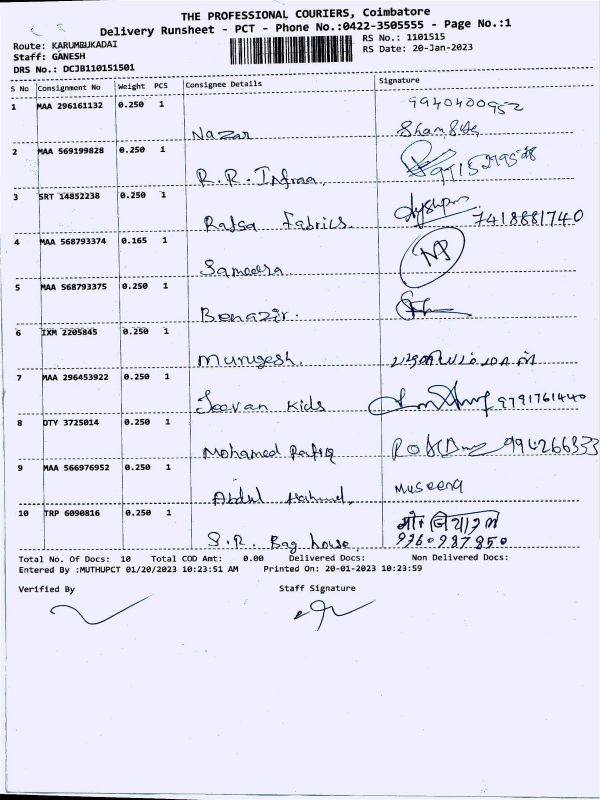 THE PROFESSIONAL COURIERS, Coimbatore
Delivery Runsheet - PCT - Phone No.:0422-3505555 - Page No.:1
Route: KARUMBUKADAI
RS No.: 1101515
Staff: GANESH
RS Date: 20-Jan-2023
DRS No.: DCJB110151501
S No Consignment No Weight PCS Consignee Details Signature
1 MAA 296161132 0.250 1 9940400952
Nazar
2 MAA 569199828 0.250 1
R.R. Infraa
3 SRT 14852238 0.250 1
Rafsa Fabrics. 7418881740
4 MAA 568793374 0.165 1 NP
Sameera
5 MAA 568793375 0.250 1
Benazir.
6 IXM 2205845 0.250 1
Murugesh.
7 MAA 296453922 0.250 1
Jeevan Kids 9791761440
8 DTY 3725014 0.250 1
Mohamed Rafiq
9 MAA 566976952 0.250 1 Museena
Abdul
10 TRP 6090816 0.250 1
S.R. Bag house,
Total No. Of Docs: 10 Total COD Amt: 0.00 Delivered Docs: Non Delivered Docs:
Entered By :MUTHUPCT 01/20/2023 10:23:51 AM Printed On: 20-01-2023 10:23:59
Verified By Staff Signature